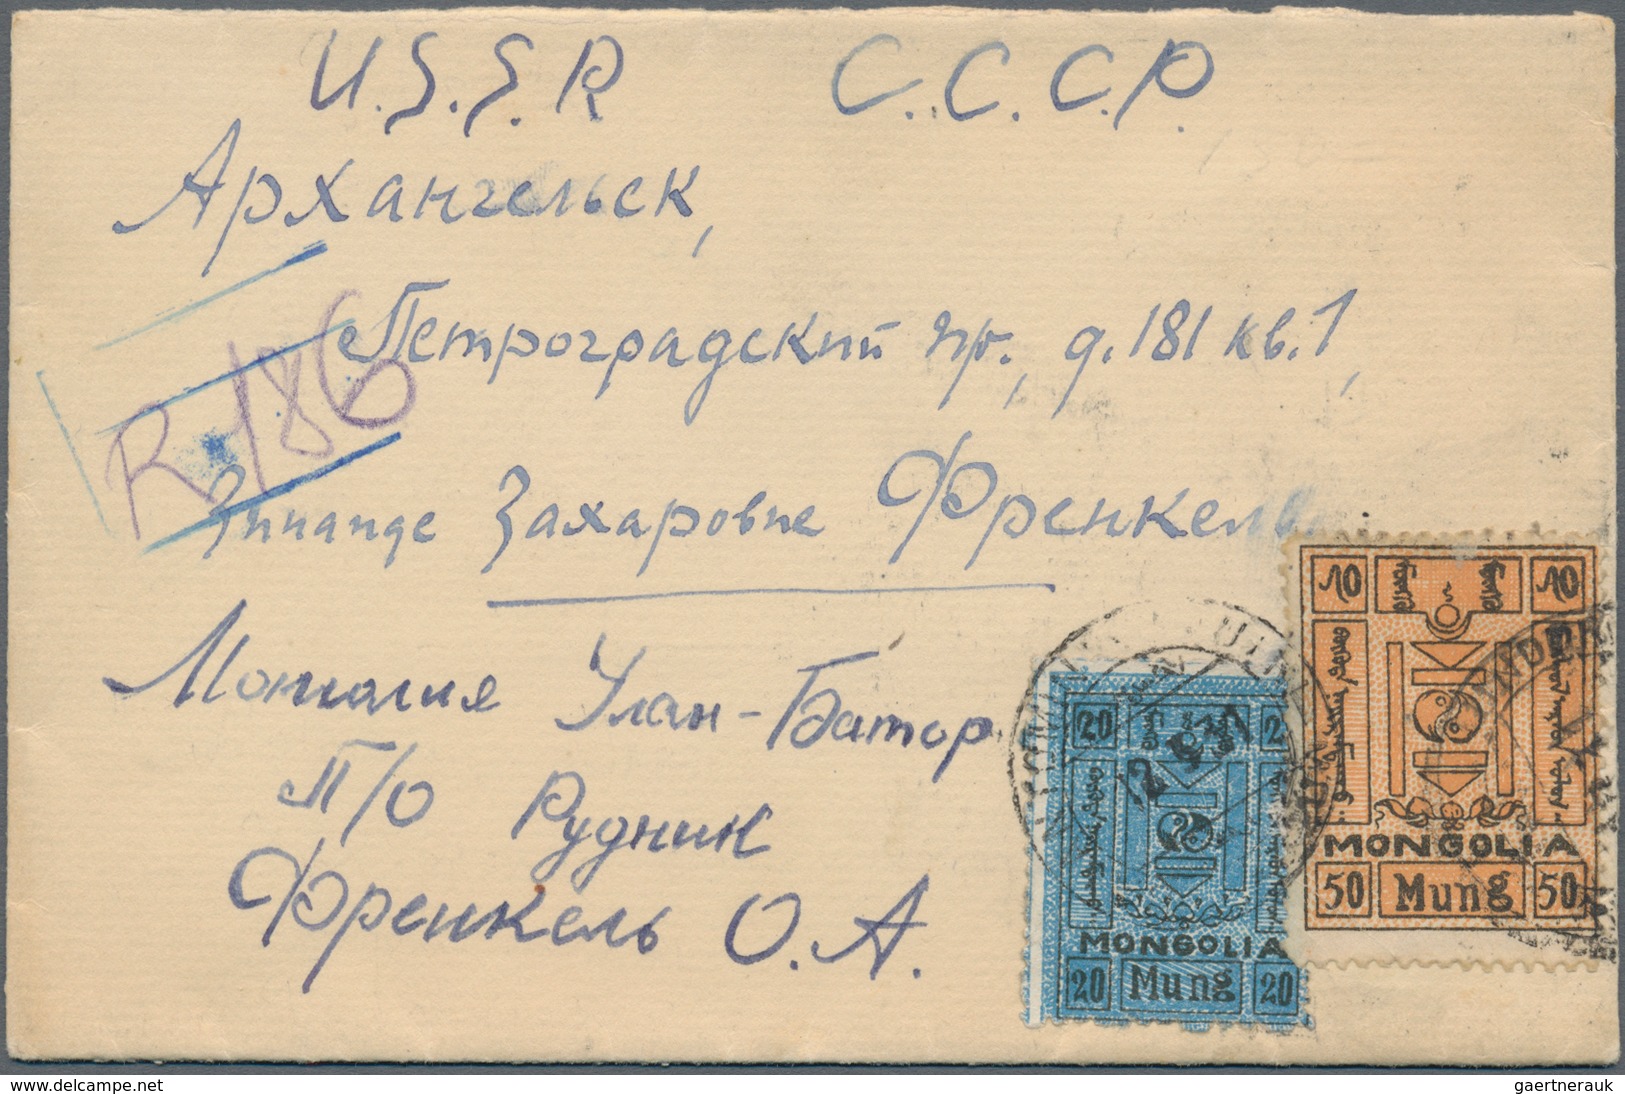 U.S.S.R С.С.С.Р.
Архангельск,
Петроградский пр., д.181 кв.1,
R 186
Зинаиде Захаровне Френкель
Монголия Улан-Батор
П/О Рудник
Френкель О.А.
20
MONGOLIA
20 Mung 20
MONGOLIA
50 Mung 50
delcampe.net
gaertnerauk